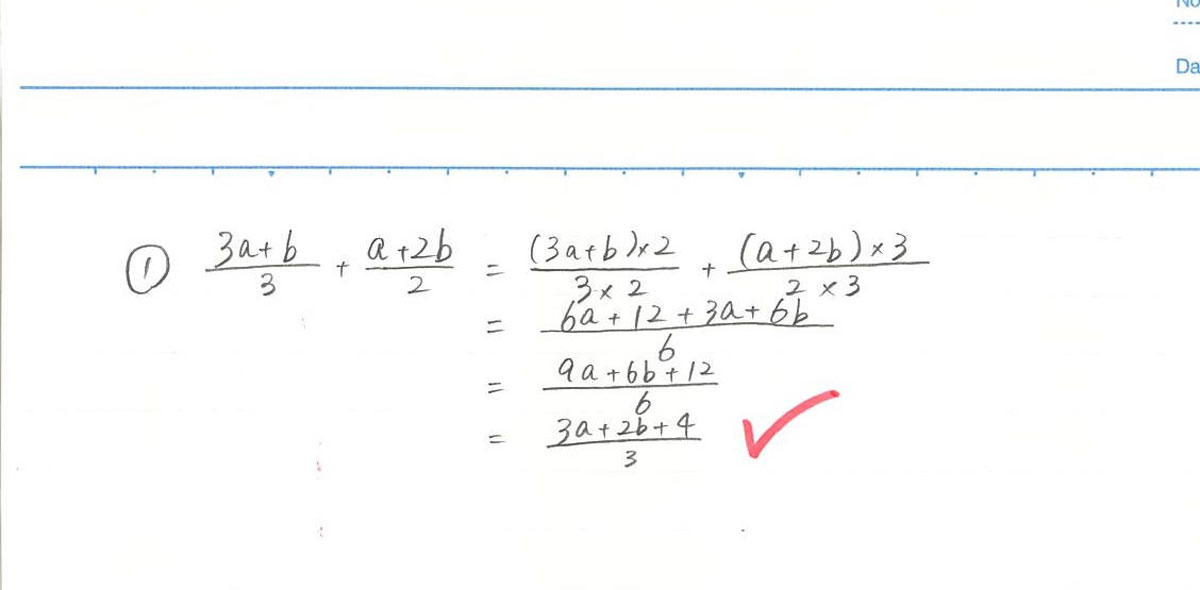 No
Da
① (3a+b)/3 + (a+2b)/2 = ((3a+b)×2)/(3×2) + ((a+2b)×3)/(2×3)
= (6a+12+3a+6b)/6
= (9a+6b+12)/6
= (3a+2b+4)/3 ✓